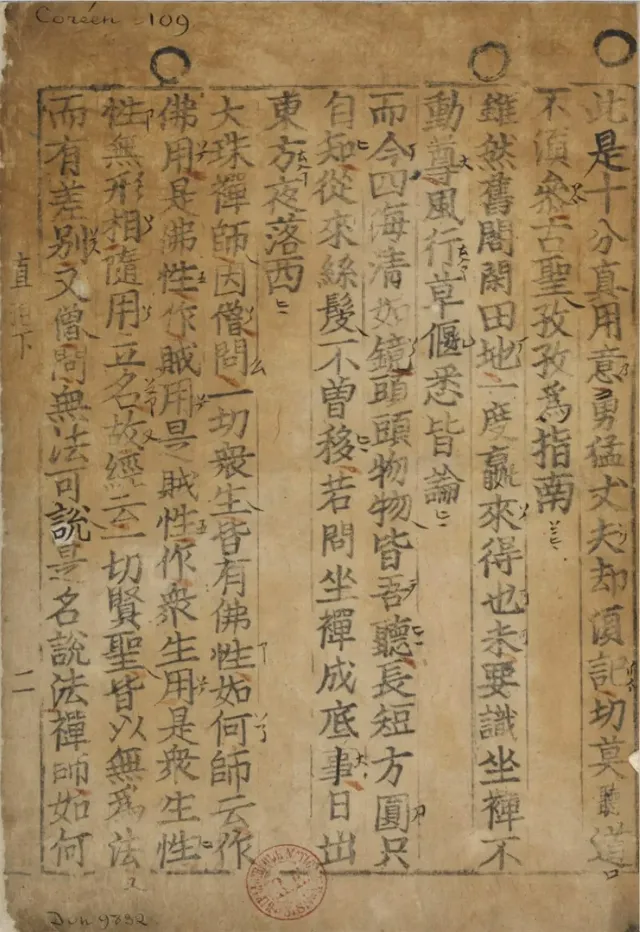 Coréen 109
此是十分真用意勇猛丈夫却須記切莫聽道
不須衆古聖孜孜爲指南
雖然舊閣閑田地一度贏來得也未要識坐禪不
動尊風行草偃悉皆論
而今四海清如鏡頭頭物物皆吾聽長短方圓只
自知從來絲髮不曾移若問坐禪成底事日出
東方夜落西
大珠禪師因僧問一切衆生皆有佛性如何師云作
佛用是佛性作賊用是賊性作衆生用是衆生性
性無形相隨用立名故經云一切賢聖皆以無爲法
而有差別又僧問無法可說是名說法禪師如何
直指下 二
Don 9832